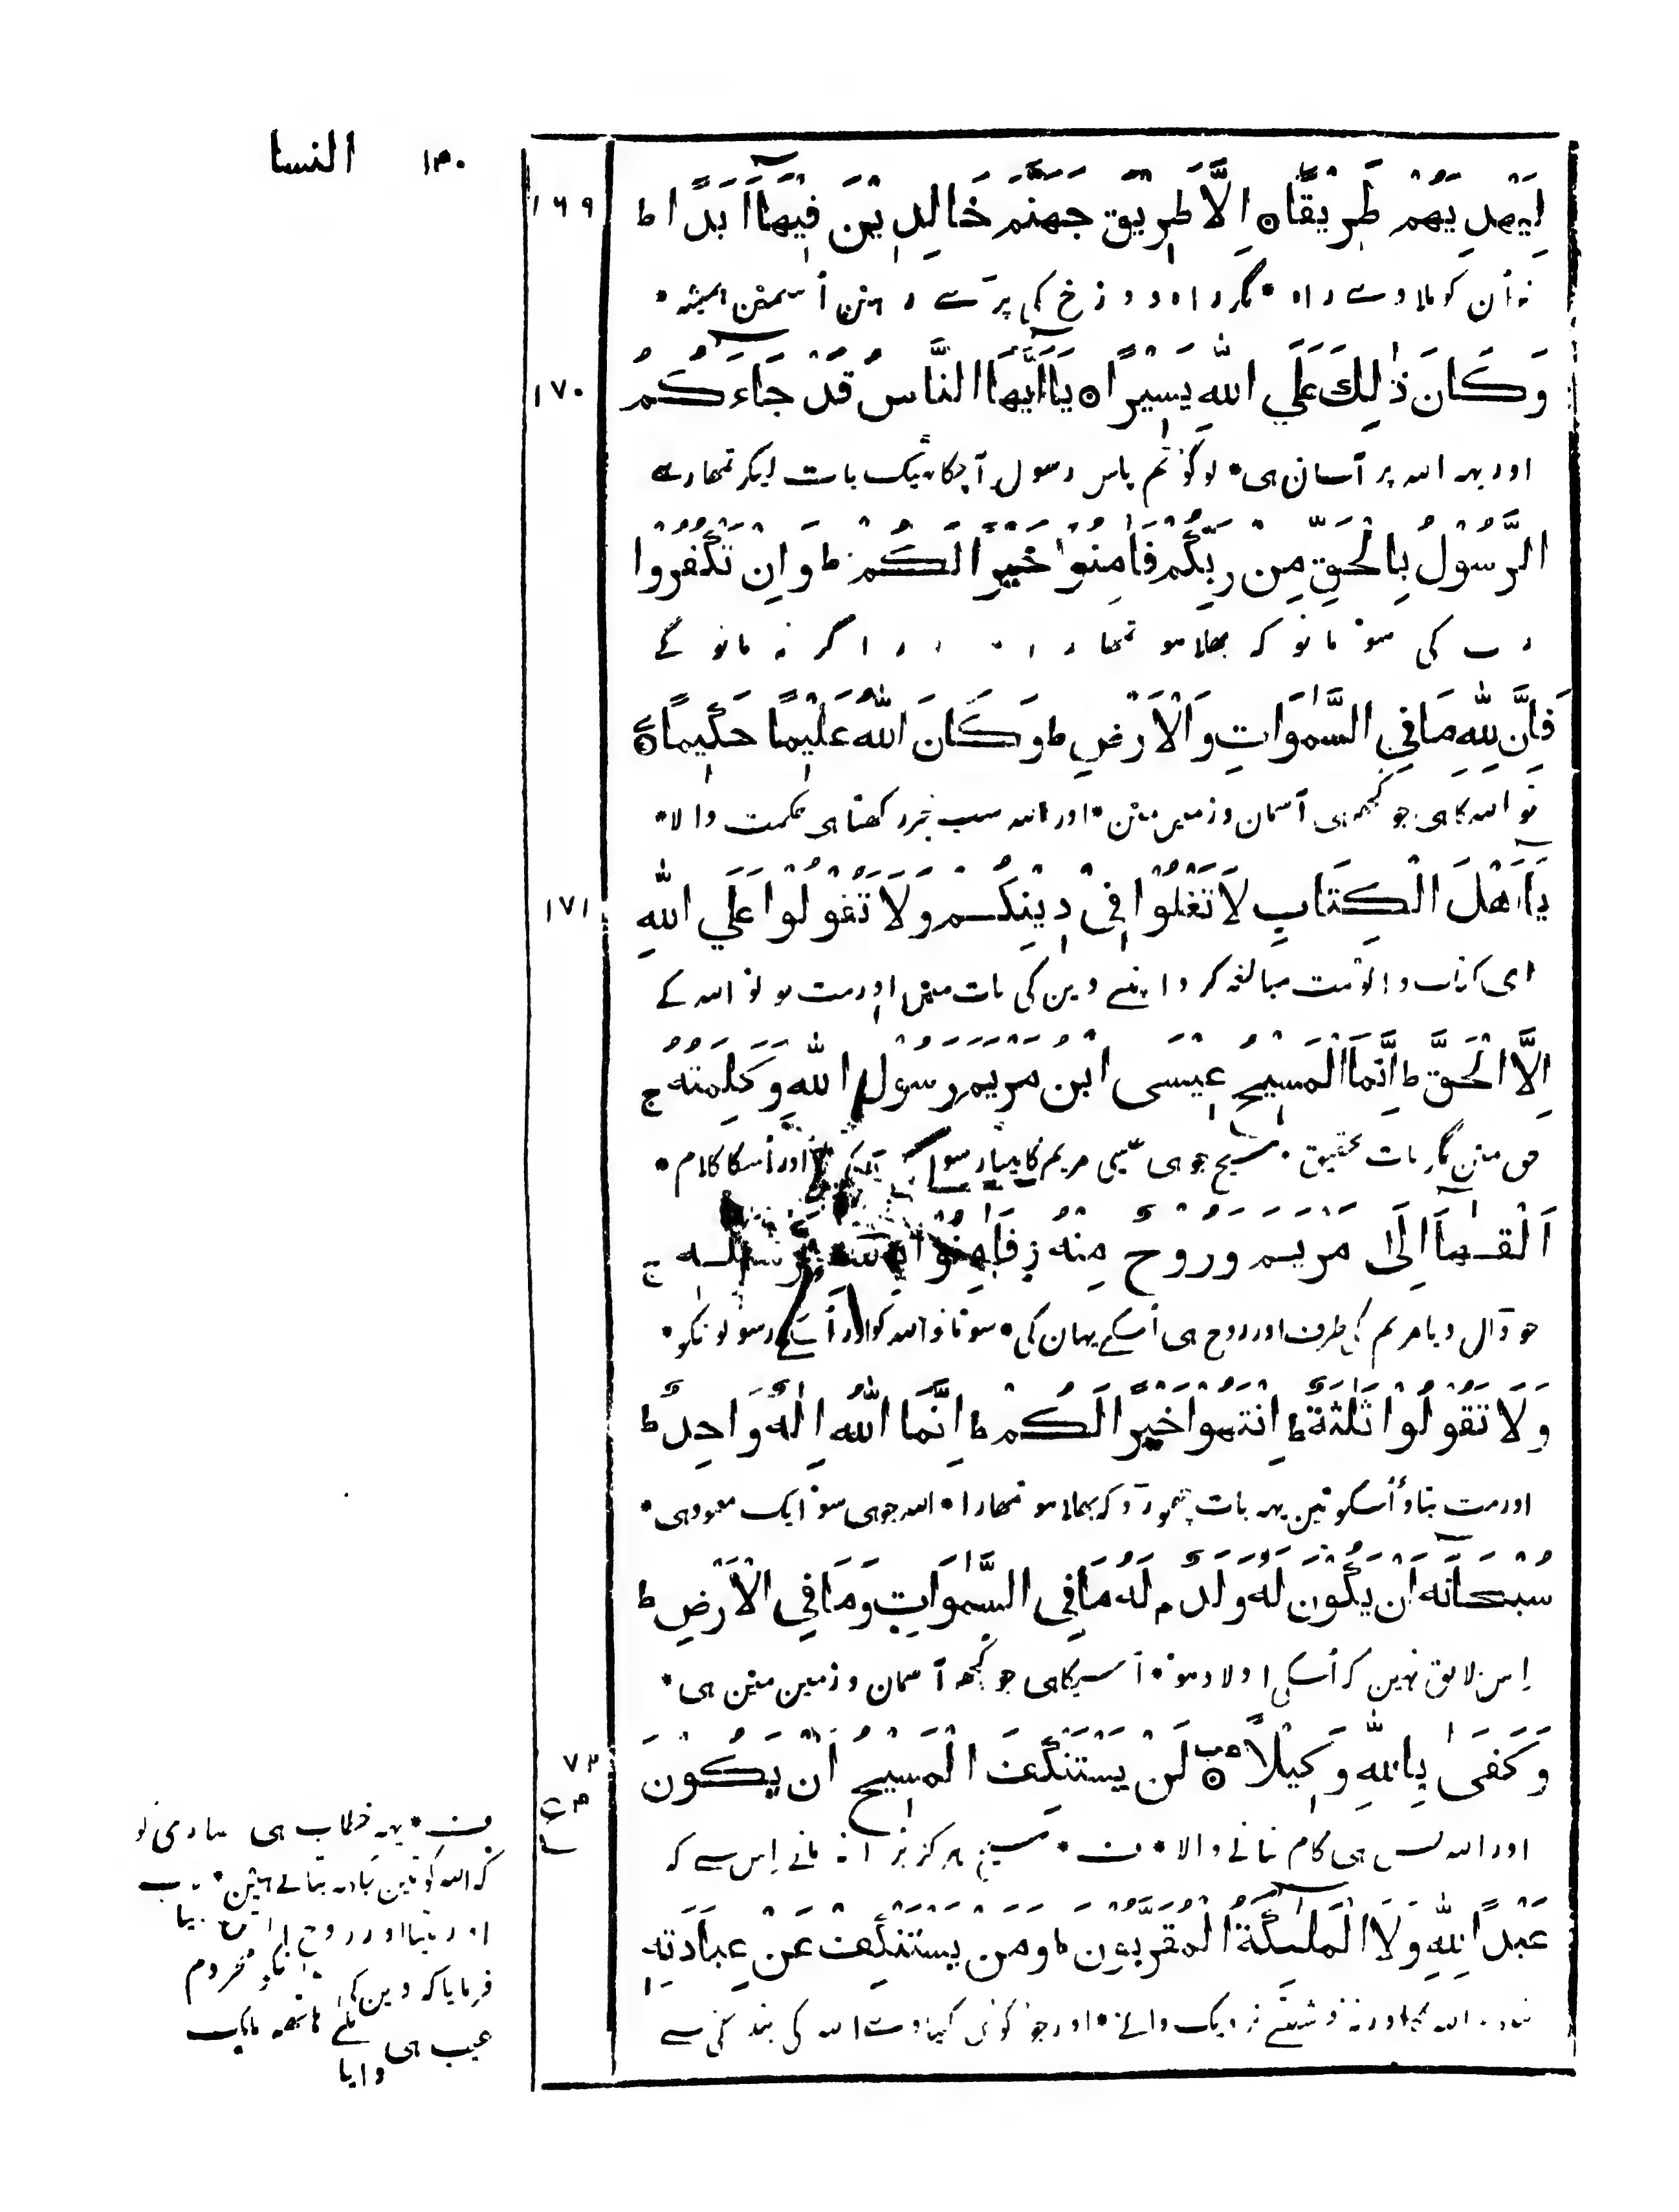 النسا ۱۳۰
لِيَهْدِيَهُمْ طَرِيْقًا ۝ اِلَّا طَرِيْقَ جَهَنَّمَ خَالِدِيْنَ فِيْهَآ اَبَدًا ط
۱۶۹
نہ أن کو ملاوے راہ * مگر راہ دوزخ کی پڑے رہین أسمین ہمیشہ *
وَكَانَ ذٰلِكَ عَلَي اللّٰهِ يَسِيْرًا ۝ يَآ اَيُّهَا النَّاسُ قَدْ جَآءَكُمُ
۱۷۰
اور یہہ اللہ پر آسان ہی * لوگو تم پاس رسول آچکا ٹھیک بات لیکر تمھارے
الرَّسُوْلُ بِالْحَقِّ مِنْ رَبِّكُمْ فَاٰمِنُوْا خَيْرًا لَكُمْ ط وَاِنْ تَكْفُرُوْا
رب کی سو مانو کہ بھلا ہو تمھارا اگر نہ مانو گے
فَاِنَّ لِلّٰهِ مَا فِي السَّمٰوَاتِ وَالْاَرْضِ ط وَكَانَ اللّٰهُ عَلِيْمًا حَكِيْمًا ۝
تو اللہ کا ہی جو کچھہ ہی آسمان و زمین مین * اور اللہ سب خبر رکھتا ہی حکمت والا *
يَآ اَهْلَ الْكِتَابِ لَا تَغْلُوْا فِيْ دِيْنِكُمْ وَلَا تَقُوْلُوْا عَلَي اللّٰهِ
۱۷۱
ای کتاب والو مت مبالغہ کرو اپنے دین کی بات مین اور مت بولو اللہ کے
اِلَّا الْحَقَّ ط اِنَّمَا الْمَسِيْحُ عِيْسَى ابْنُ مَرْيَمَ رَسُوْلُ اللّٰهِ وَكَلِمَتُهُ ج
حق مین مگر بات تحقیق * مسیح جو ہی عیسی مریم کا بیٹا رسول اور أسکا کلام *
اَلْقٰىهَآ اِلَىٰ مَرْيَمَ وَرُوْحٌ مِنْهُ ز فَاٰمِنُوْا بِاللّٰهِ وَرُسُلِهِ ج
جو ڈال دیا مریم کی طرف اور روح ہی أسکے یہان کی * سو مانو اللہ کو اور أسکے رسولونکو *
وَلَا تَقُوْلُوْا ثَلٰثَةٌ ط اِنْتَهُوْا خَيْرًا لَكُمْ ط اِنَّمَا اللّٰهُ اِلٰهٌ وَاحِدٌ ط
اور مت بتاؤ أسکو تین یہہ بات چھوڑو کہ بھلا ہو تمھارا * اللہ جو ہی سو ایک معبود ہی *
سُبْحَانَهٗ اَنْ يَكُوْنَ لَهُ وَلَدٌ م لَهُ مَا فِي السَّمٰوَاتِ وَمَا فِي الْاَرْضِ ط
اِس لایق نہین کہ أسکی اولاد ہو * أسیکا ہی جو کچھہ آسمان و زمین مین ہی *
وَكَفَىٰ بِاللّٰهِ وَكِيْلًا ۝ لَنْ يَسْتَنْكِفَ الْمَسِيْحُ اَنْ يَكُوْنَ
۷۲
اور اللہ بس ہی کام بنانے والا * ف * مسیح ہرگز برا نہ مانے اِس سے کہ
عَبْدًا لِلّٰهِ وَلَا الْمَلٰئِكَةُ الْمُقَرَّبُوْنَ ط وَمَنْ يَسْتَنْكِفْ عَنْ عِبَادَتِهِ
اللہ کا اور نہ فرشتے نزدیک والے * اور جو کوئی کنیاوے اللہ کی بندگی سے
ف * یہہ خطاب ہی
کہ اللہ کو تین بتاتے ہین *
اور بیٹا اور روح
فرمایا کہ دین کی
عیب ہی